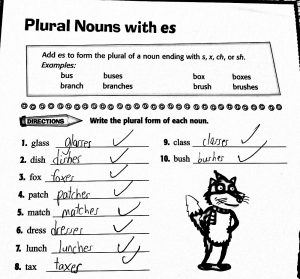 Plural Nouns with es
Add es to form the plural of a noun ending with s, x, ch, or sh.
Examples:
bus buses box boxes
branch branches brush brushes
DIRECTIONS Write the plural form of each noun.
1. glass glasses
2. dish dishes
3. fox foxes
4. patch patches
5. match matches
6. dress dresses
7. lunch lunches
8. tax taxes
9. class classes
10. bush bushes